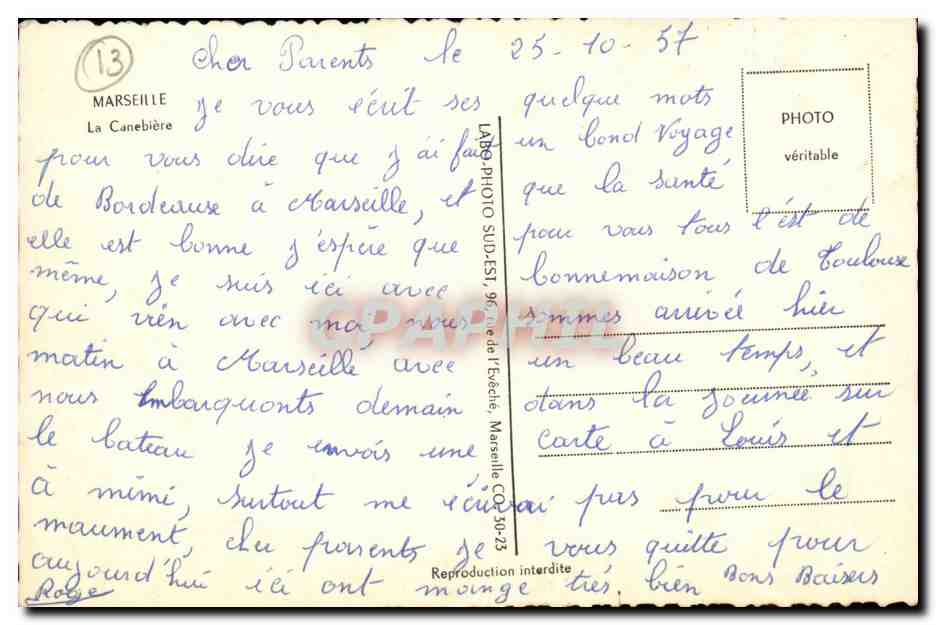 13
Cher Parents le 25-10-57
MARSEILLE
La Canebière
PHOTO
véritable
Je vous écrit ses quelque mots
pour vous dire que j'ai fait un bond voyage
de Bordeause à Marseille, et que la santé
elle est bonne j'espère que pour vous tous l'est de
même, je suis ici avec bonnemaison de Toulouse
qui vien avec moi, nous sommes arrivée hier
matin à Marseille avec un beau temps, et
nous Embarquonts demain dans la journée sur
le bateau je envois une carte à Louis et
à mémé, surtout me écrivai pas pour le
maument, cher parents je vous quitte pour
aujourd'hui ici ont mange très bien Bons Baisers
Roge
LABO-PHOTO SUD-EST, 96, rue de l'Evêché, Marseille CO. 30-23
Reproduction interdite
CPAPHIL